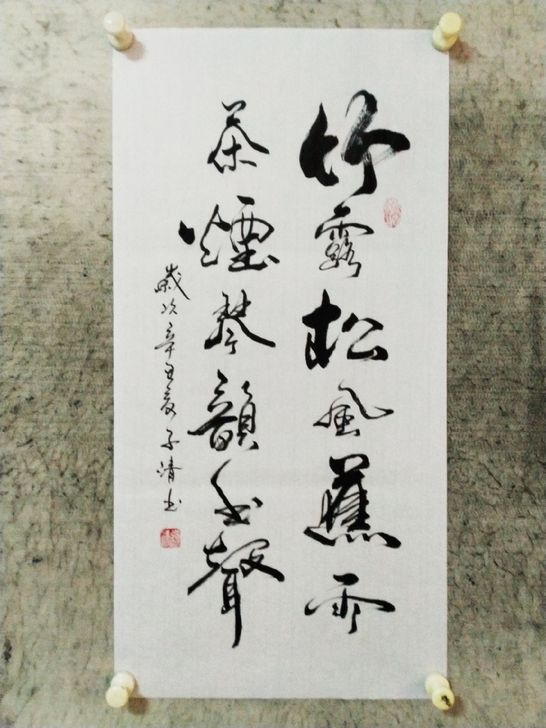 竹露松風蕉雨
茶煙琴韻書聲
歲次辛丑夏子清书